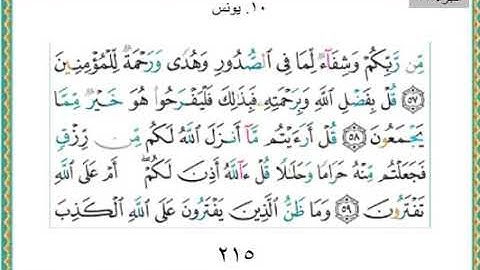 ١٠. يونس
مِّن رَّبِّكُمْ وَشِفَآءٌ لِّمَا فِى ٱلصُّدُورِ وَهُدًى وَرَحْمَةٌ لِّلْمُؤْمِنِينَ
٥٧ قُلْ بِفَضْلِ ٱللَّهِ وَبِرَحْمَتِهِۦ فَبِذَٰلِكَ فَلْيَفْرَحُوا۟ هُوَ خَيْرٌ مِّمَّا
يَجْمَعُونَ ٥٨ قُلْ أَرَءَيْتُم مَّآ أَنزَلَ ٱللَّهُ لَكُم مِّن رِّزْقٍ
فَجَعَلْتُم مِّنْهُ حَرَامًا وَحَلَٰلًا قُلْ ءَآللَّهُ أَذِنَ لَكُمْ ۖ أَمْ عَلَى ٱللَّهِ
تَفْتَرُونَ ٥٩ وَمَا ظَنُّ ٱلَّذِينَ يَفْتَرُونَ عَلَى ٱللَّهِ ٱلْكَذِبَ
٢١٥